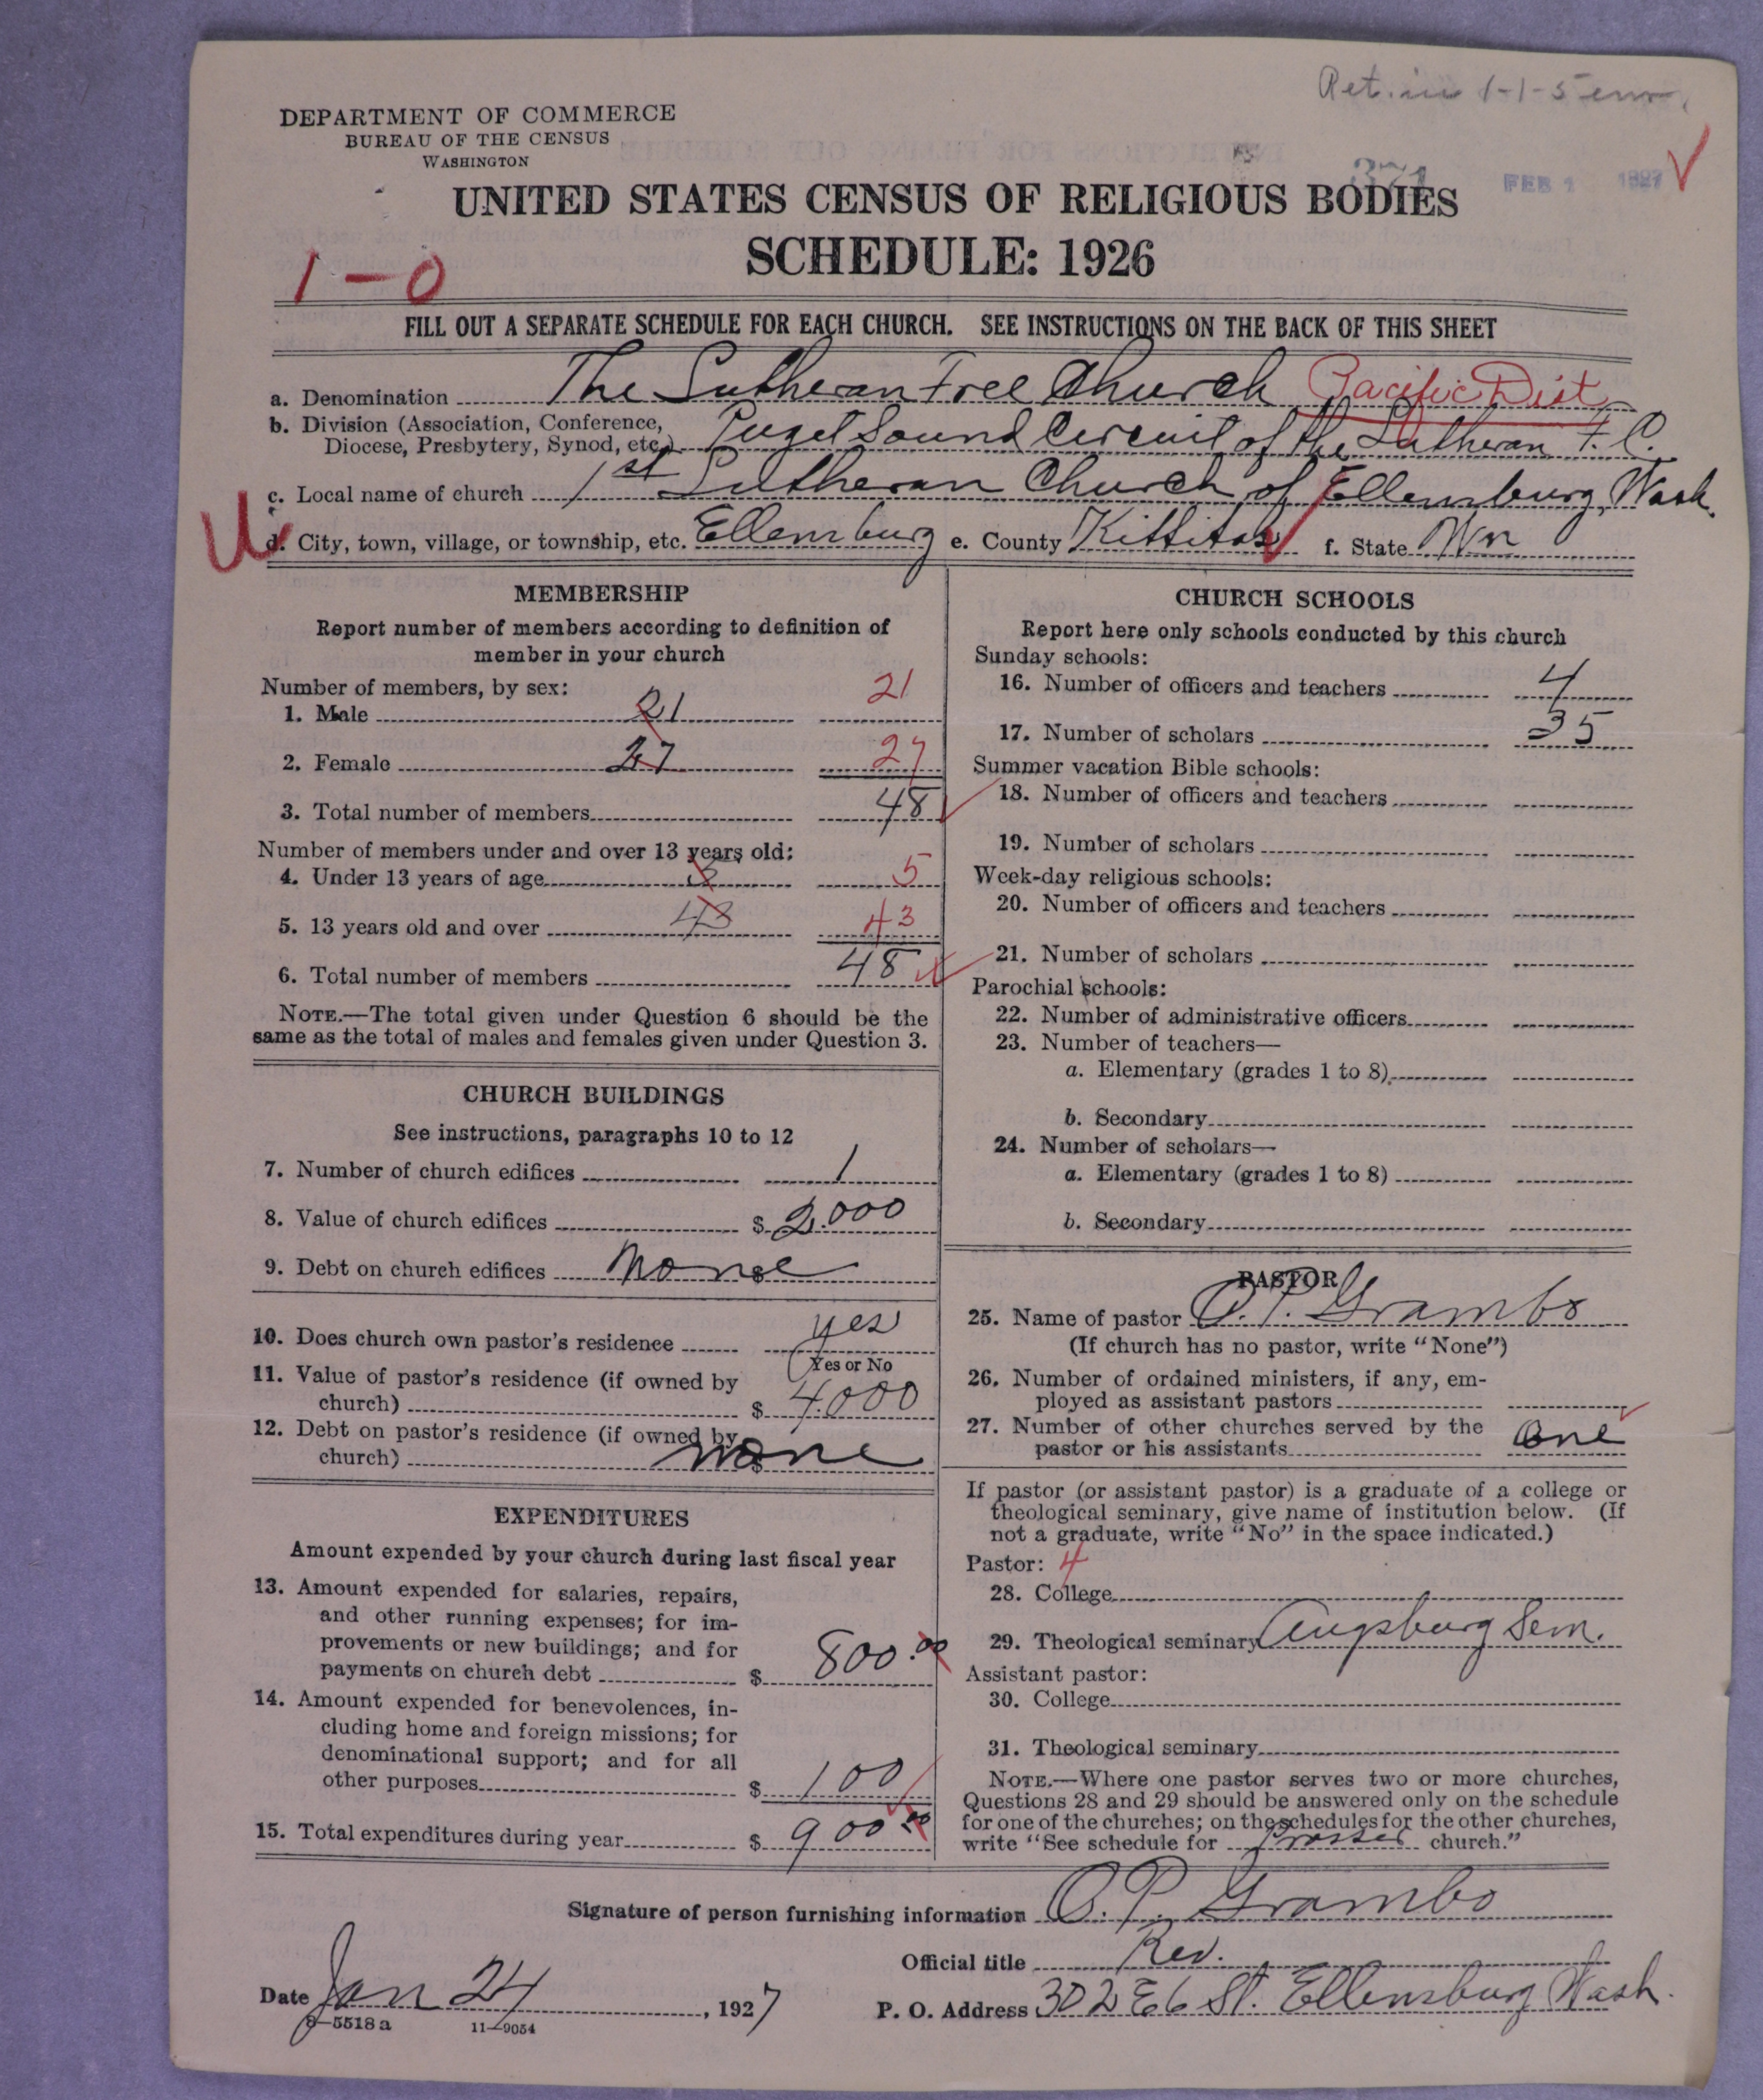 Ret. in 1-1-5
DEPARTMENT OF COMMERCE
BUREAU OF THE CENSUS
WASHINGTON
371 FEB 1 1927
UNITED STATES CENSUS OF RELIGIOUS BODIES
SCHEDULE: 1926
1-0
FILL OUT A SEPARATE SCHEDULE FOR EACH CHURCH. SEE INSTRUCTIONS ON THE BACK OF THIS SHEET
a. Denomination The Lutheran Free Church Pacific Dist
b. Division (Association, Conference,
Diocese, Presbytery, Synod, etc.) Puget Sound Circuit of the Lutheran F. C.
c. Local name of church 1st Lutheran Church of Ellensburg, Wash.
U
d. City, town, village, or township, etc. Ellensburg e. County Kittitas f. State Wn
MEMBERSHIP
Report number of members according to definition of
member in your church
Number of members, by sex:
1. Male 21 21
2. Female 27 27
3. Total number of members 48
Number of members under and over 13 years old:
4. Under 13 years of age 5
5. 13 years old and over 43 43
6. Total number of members 48
NOTE.—The total given under Question 6 should be the
same as the total of males and females given under Question 3.
CHURCH BUILDINGS
See instructions, paragraphs 10 to 12
7. Number of church edifices 1
8. Value of church edifices $ 2.000
9. Debt on church edifices None $
10. Does church own pastor's residence yes
Yes or No
11. Value of pastor's residence (if owned by
church) $ 4.000
12. Debt on pastor's residence (if owned by
church) $ none
EXPENDITURES
Amount expended by your church during last fiscal year
13. Amount expended for salaries, repairs,
and other running expenses; for im-
provements or new buildings; and for
payments on church debt $ 800.00
14. Amount expended for benevolences, in-
cluding home and foreign missions; for
denominational support; and for all
other purposes $ 100
15. Total expenditures during year $ 900 00
CHURCH SCHOOLS
Report here only schools conducted by this church
Sunday schools:
16. Number of officers and teachers 4
17. Number of scholars 35
Summer vacation Bible schools:
18. Number of officers and teachers
19. Number of scholars
Week-day religious schools:
20. Number of officers and teachers
21. Number of scholars
Parochial schools:
22. Number of administrative officers
23. Number of teachers—
a. Elementary (grades 1 to 8)
b. Secondary
24. Number of scholars—
a. Elementary (grades 1 to 8)
b. Secondary
PASTOR
25. Name of pastor O. P. Grambo
(If church has no pastor, write "None")
26. Number of ordained ministers, if any, em-
ployed as assistant pastors
27. Number of other churches served by the
pastor or his assistants One
If pastor (or assistant pastor) is a graduate of a college or
theological seminary, give name of institution below. (If
not a graduate, write "No" in the space indicated.)
Pastor: 4
28. College
29. Theological seminary Augsburg Sem.
Assistant pastor:
30. College
31. Theological seminary
NOTE.—Where one pastor serves two or more churches,
Questions 28 and 29 should be answered only on the schedule
for one of the churches; on the schedules for the other churches,
write "See schedule for Prosser church."
Signature of person furnishing information O. P. Grambo
Official title Rev.
Date Jan 24, 1927
P. O. Address 302 E 6 St. Ellensburg Wash.
8—5518 a 11—9054